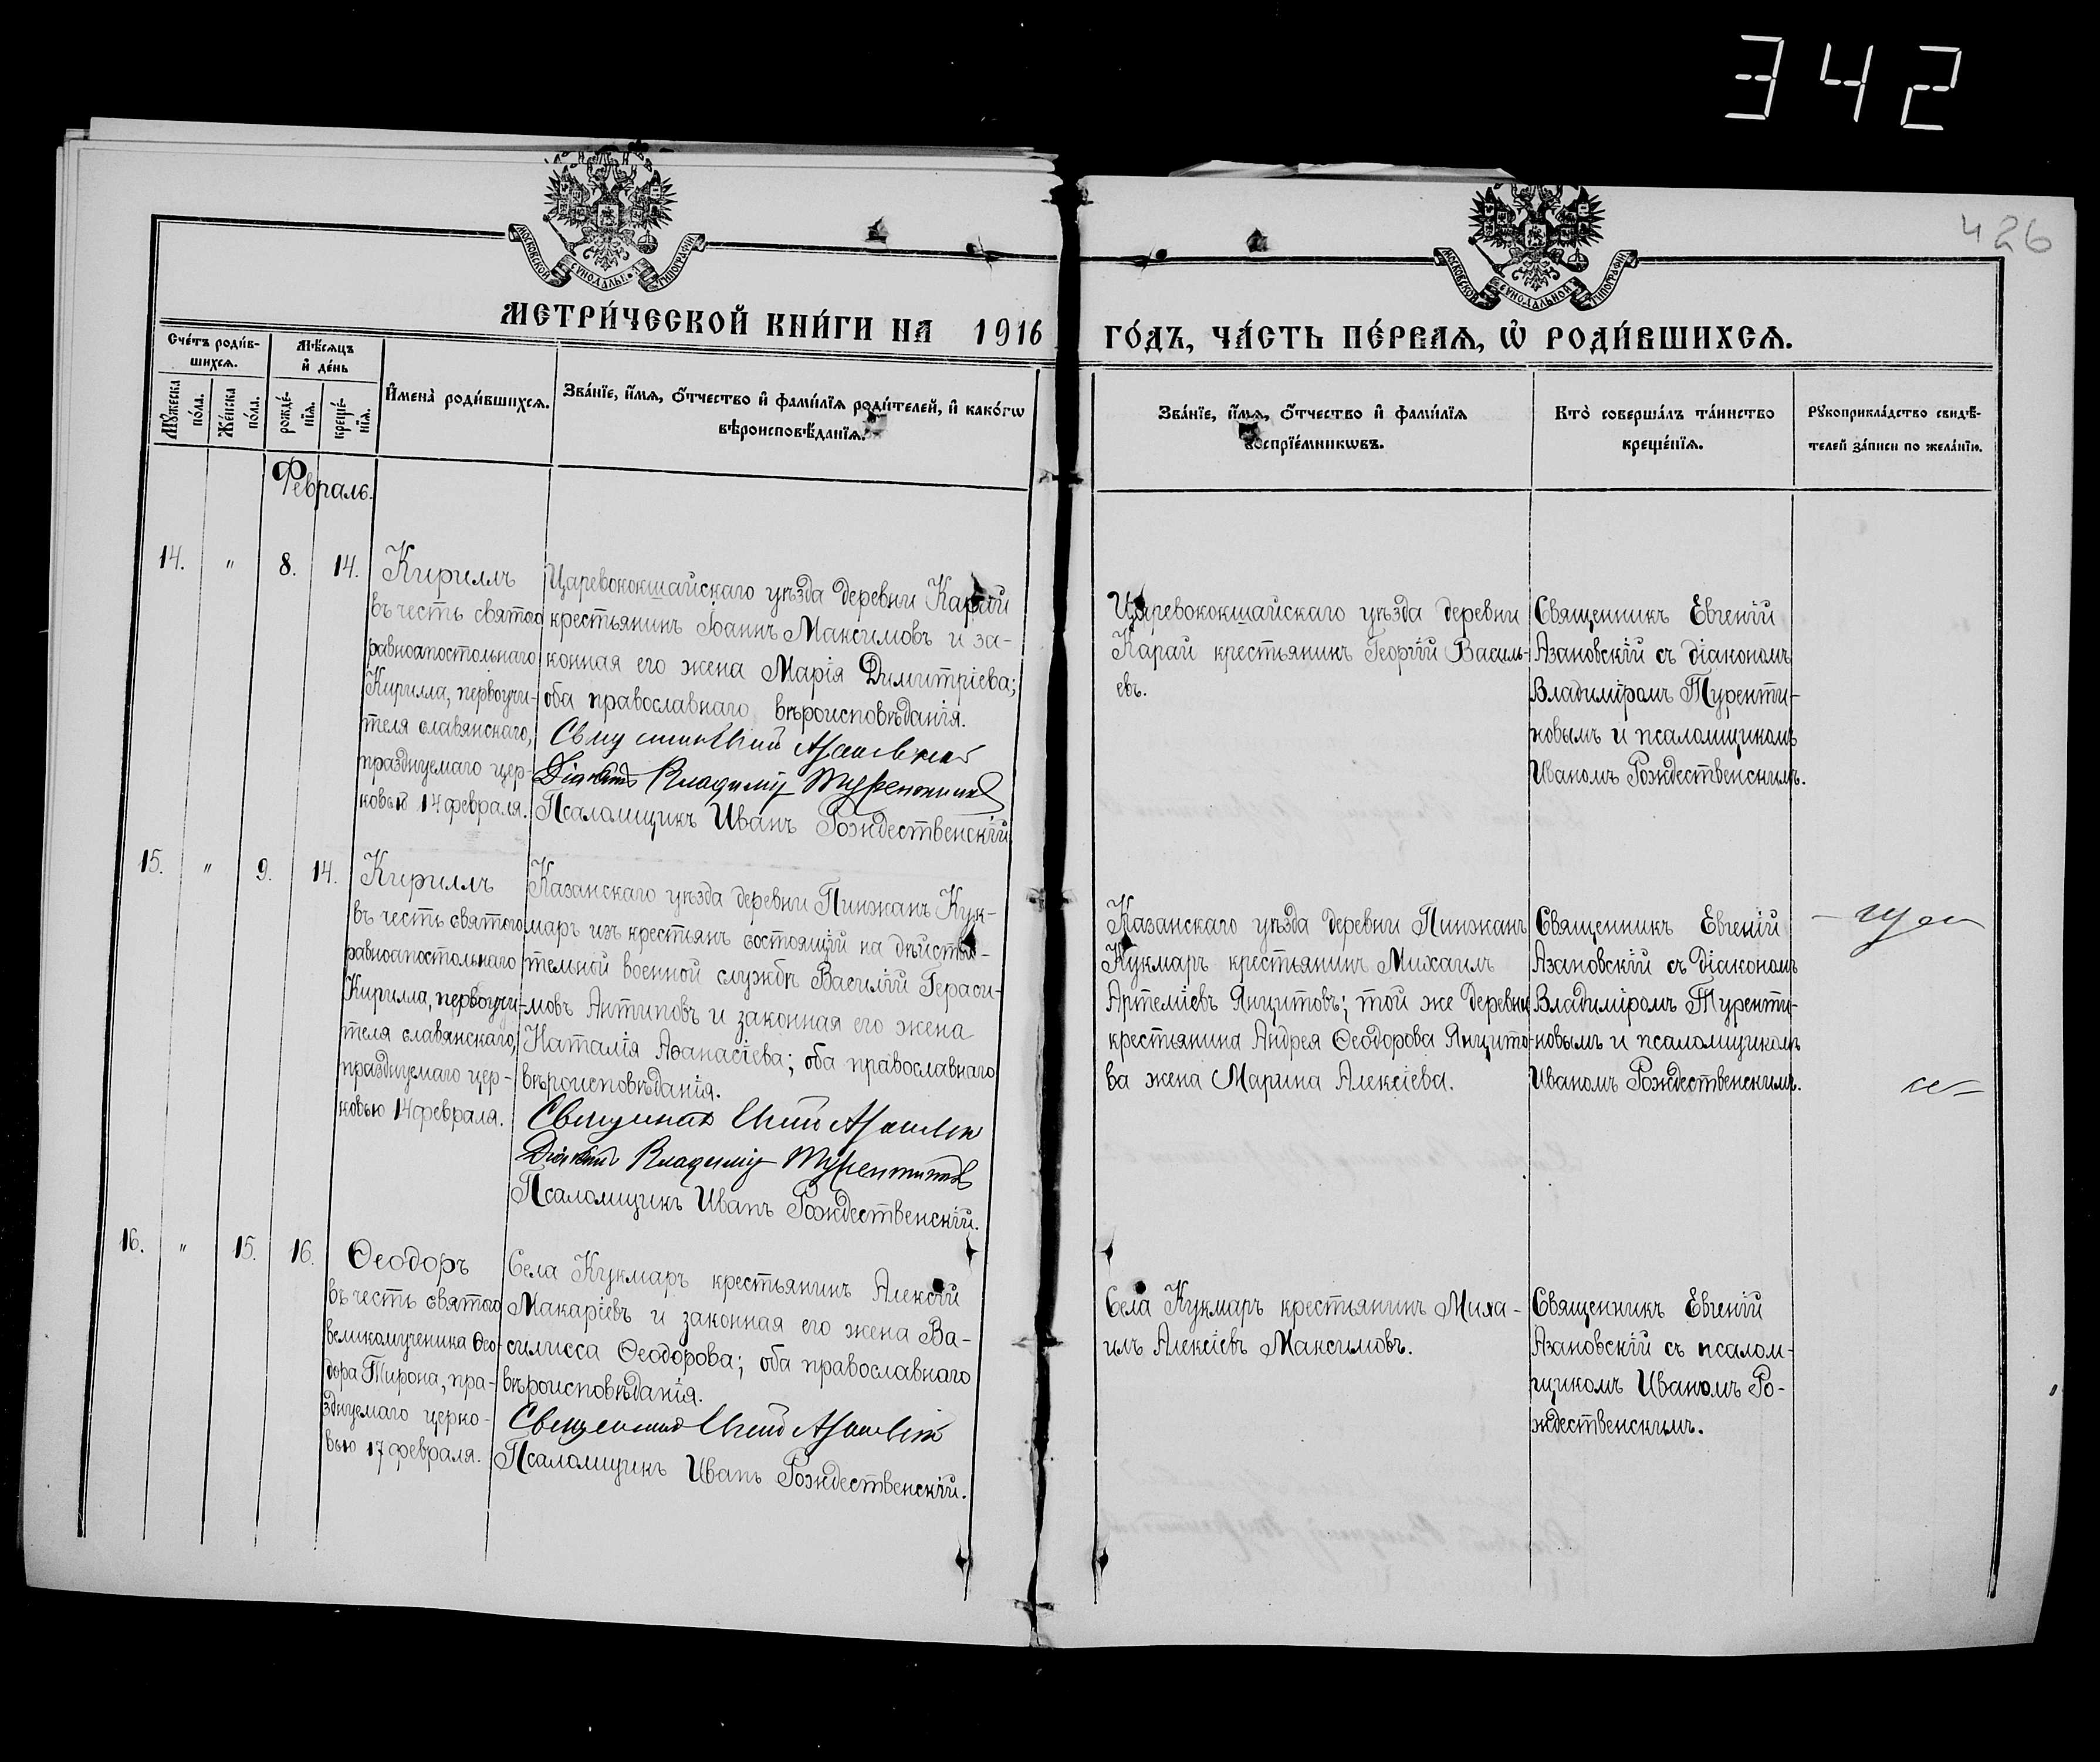 342
426
МОСКОВСКОЙ СѴНОДАЛЬНОЙ ТИПОГРАФІИ
МОСКОВСКОЙ СѴНОДАЛЬНОЙ ТИПОГРАФІИ
МЕТРИ́ЧЕСКОЙ КНИ́ГИ НА 1916 ГО́ДЪ, ЧА́СТЬ ПЕ́РВАѦ, Ѡ҆ РОДИ́ВШИХСѦ.
Сче́тъ роди́в-
шихсѧ.
Мѣ́сѧцъ
и҆ де́нь
Мꙋ́жеска
по́ла.
Же́нска
по́ла.
рожде́-
нїѧ.
креще́-
нїѧ.
И҆мена̀ роди́вшихсѧ.
Зва́нїе, и҆́мѧ, ѻ҆́тчество и҆ фами́лїѧ роди́телей, и҆ како́гѡ
вѣроисповѣ́данїѧ.
Зва́нїе, и҆́мѧ, ѻ҆́тчество и҆ фами́лїѧ
воспрїе́мникѡвъ.
Кто̀ соверша́лъ та́инство
креще́нїѧ.
Рꙋкоприкла́дство свидѣ́-
телей за́писи по жела́нїю.
Февраль.
14. " 8. 14.
Кириллъ
въ честь святого
равноапостольнаго
Кирилла, первоучи-
теля славянскаго,
празднуемаго цер-
ковью 14 февраля.
Царевококшайскаго уѣзда деревни Карай
крестьянинъ Іоаннъ Максимовъ и за-
конная его жена Марія Димитріева;
оба православнаго вѣроисповѣданія.
Священникъ Евгеній Азановскій
Діаконъ Владиміръ Турентиновъ
Псаломщикъ Иванъ Рождественскій
Царевококшайскаго уѣзда деревни
Карай крестьянинъ Георгій Василь-
евъ.
Священникъ Евгеній
Азановскій съ діакономъ
Владиміромъ Туренти-
новымъ и псаломщикомъ
Иваномъ Рождественскимъ.
15. " 9. 14.
Кириллъ
въ честь святого
равноапостольнаго
Кирилла, первоучи-
теля славянскаго,
празднуемаго цер-
ковью 14 февраля.
Казанскаго уѣзда деревни Пинжанъ Кук-
маръ изъ крестьянъ состоящій на дѣйстви-
тельной военной службѣ Василій Гераси-
мовъ Антиповъ и законная его жена
Наталія Аѳанасіева; оба православнаго
вѣроисповѣданія.
Священникъ Евгеній Азановскій
Діаконъ Владиміръ Турентиновъ
Псаломщикъ Иванъ Рождественскій.
Казанскаго уѣзда деревни Пинжанъ
Кукмаръ крестьянинъ Михаилъ
Артеміевъ Янцитовъ; той же деревни
крестьянина Андрея Ѳеодорова Янцито-
ва жена Марина Алексіева.
Священникъ Евгеній
Азановскій съ діакономъ
Владиміромъ Туренти-
новымъ и псаломщикомъ
Иваномъ Рождественскимъ.
16. " 15. 16.
Ѳеодоръ
въ честь святого
великомученика Ѳео-
дора Тирона, пра-
зднуемаго церко-
вью 17 февраля.
Села Кукмаръ крестьянинъ Алексій
Макаріевъ и законная его жена Ва-
силисса Ѳеодорова; оба православнаго
вѣроисповѣданія.
Священникъ Евгеній Азановскій
Псаломщикъ Иванъ Рождественскій.
Села Кукмаръ крестьянинъ Миха-
илъ Алексіевъ Максимовъ.
Священникъ Евгеній
Азановскій съ псалом-
щикомъ Иваномъ Ро-
ждественскимъ.